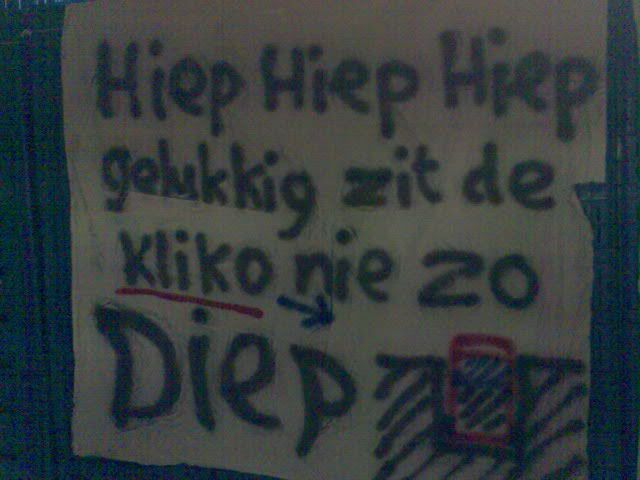 Hiep Hiep Hiep
gelukkig zit de
kliko nie zo
Diep